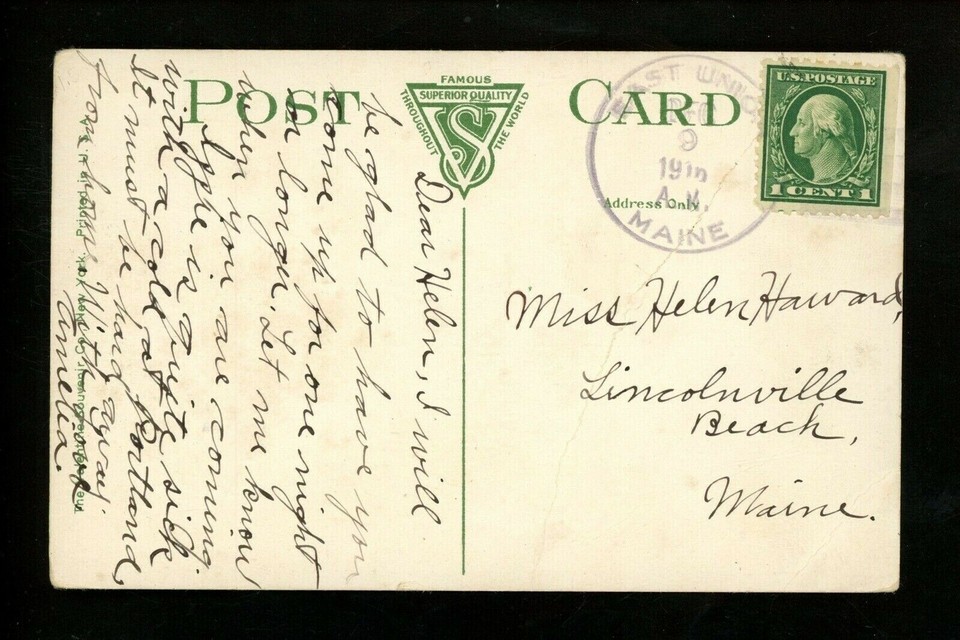 POST CARD
FAMOUS
SUPERIOR QUALITY
THROUGHOUT THE WORLD
VS
EAST UNION
9
A.M.
MAINE
U.S. POSTAGE
1 CENT 1
Address Only
Miss Helen Haward,
Lincolnville
Beach,
Maine.
Dear Helen, I will
be glad to have you
come up for one night
or longer. Let me know
when you are coming.
is quite sick
with a cold at Portland,
It must be hard away
from home. With love
Amelia.
The Valentine-Souvenir Co., New York. Printed in U.S.A.